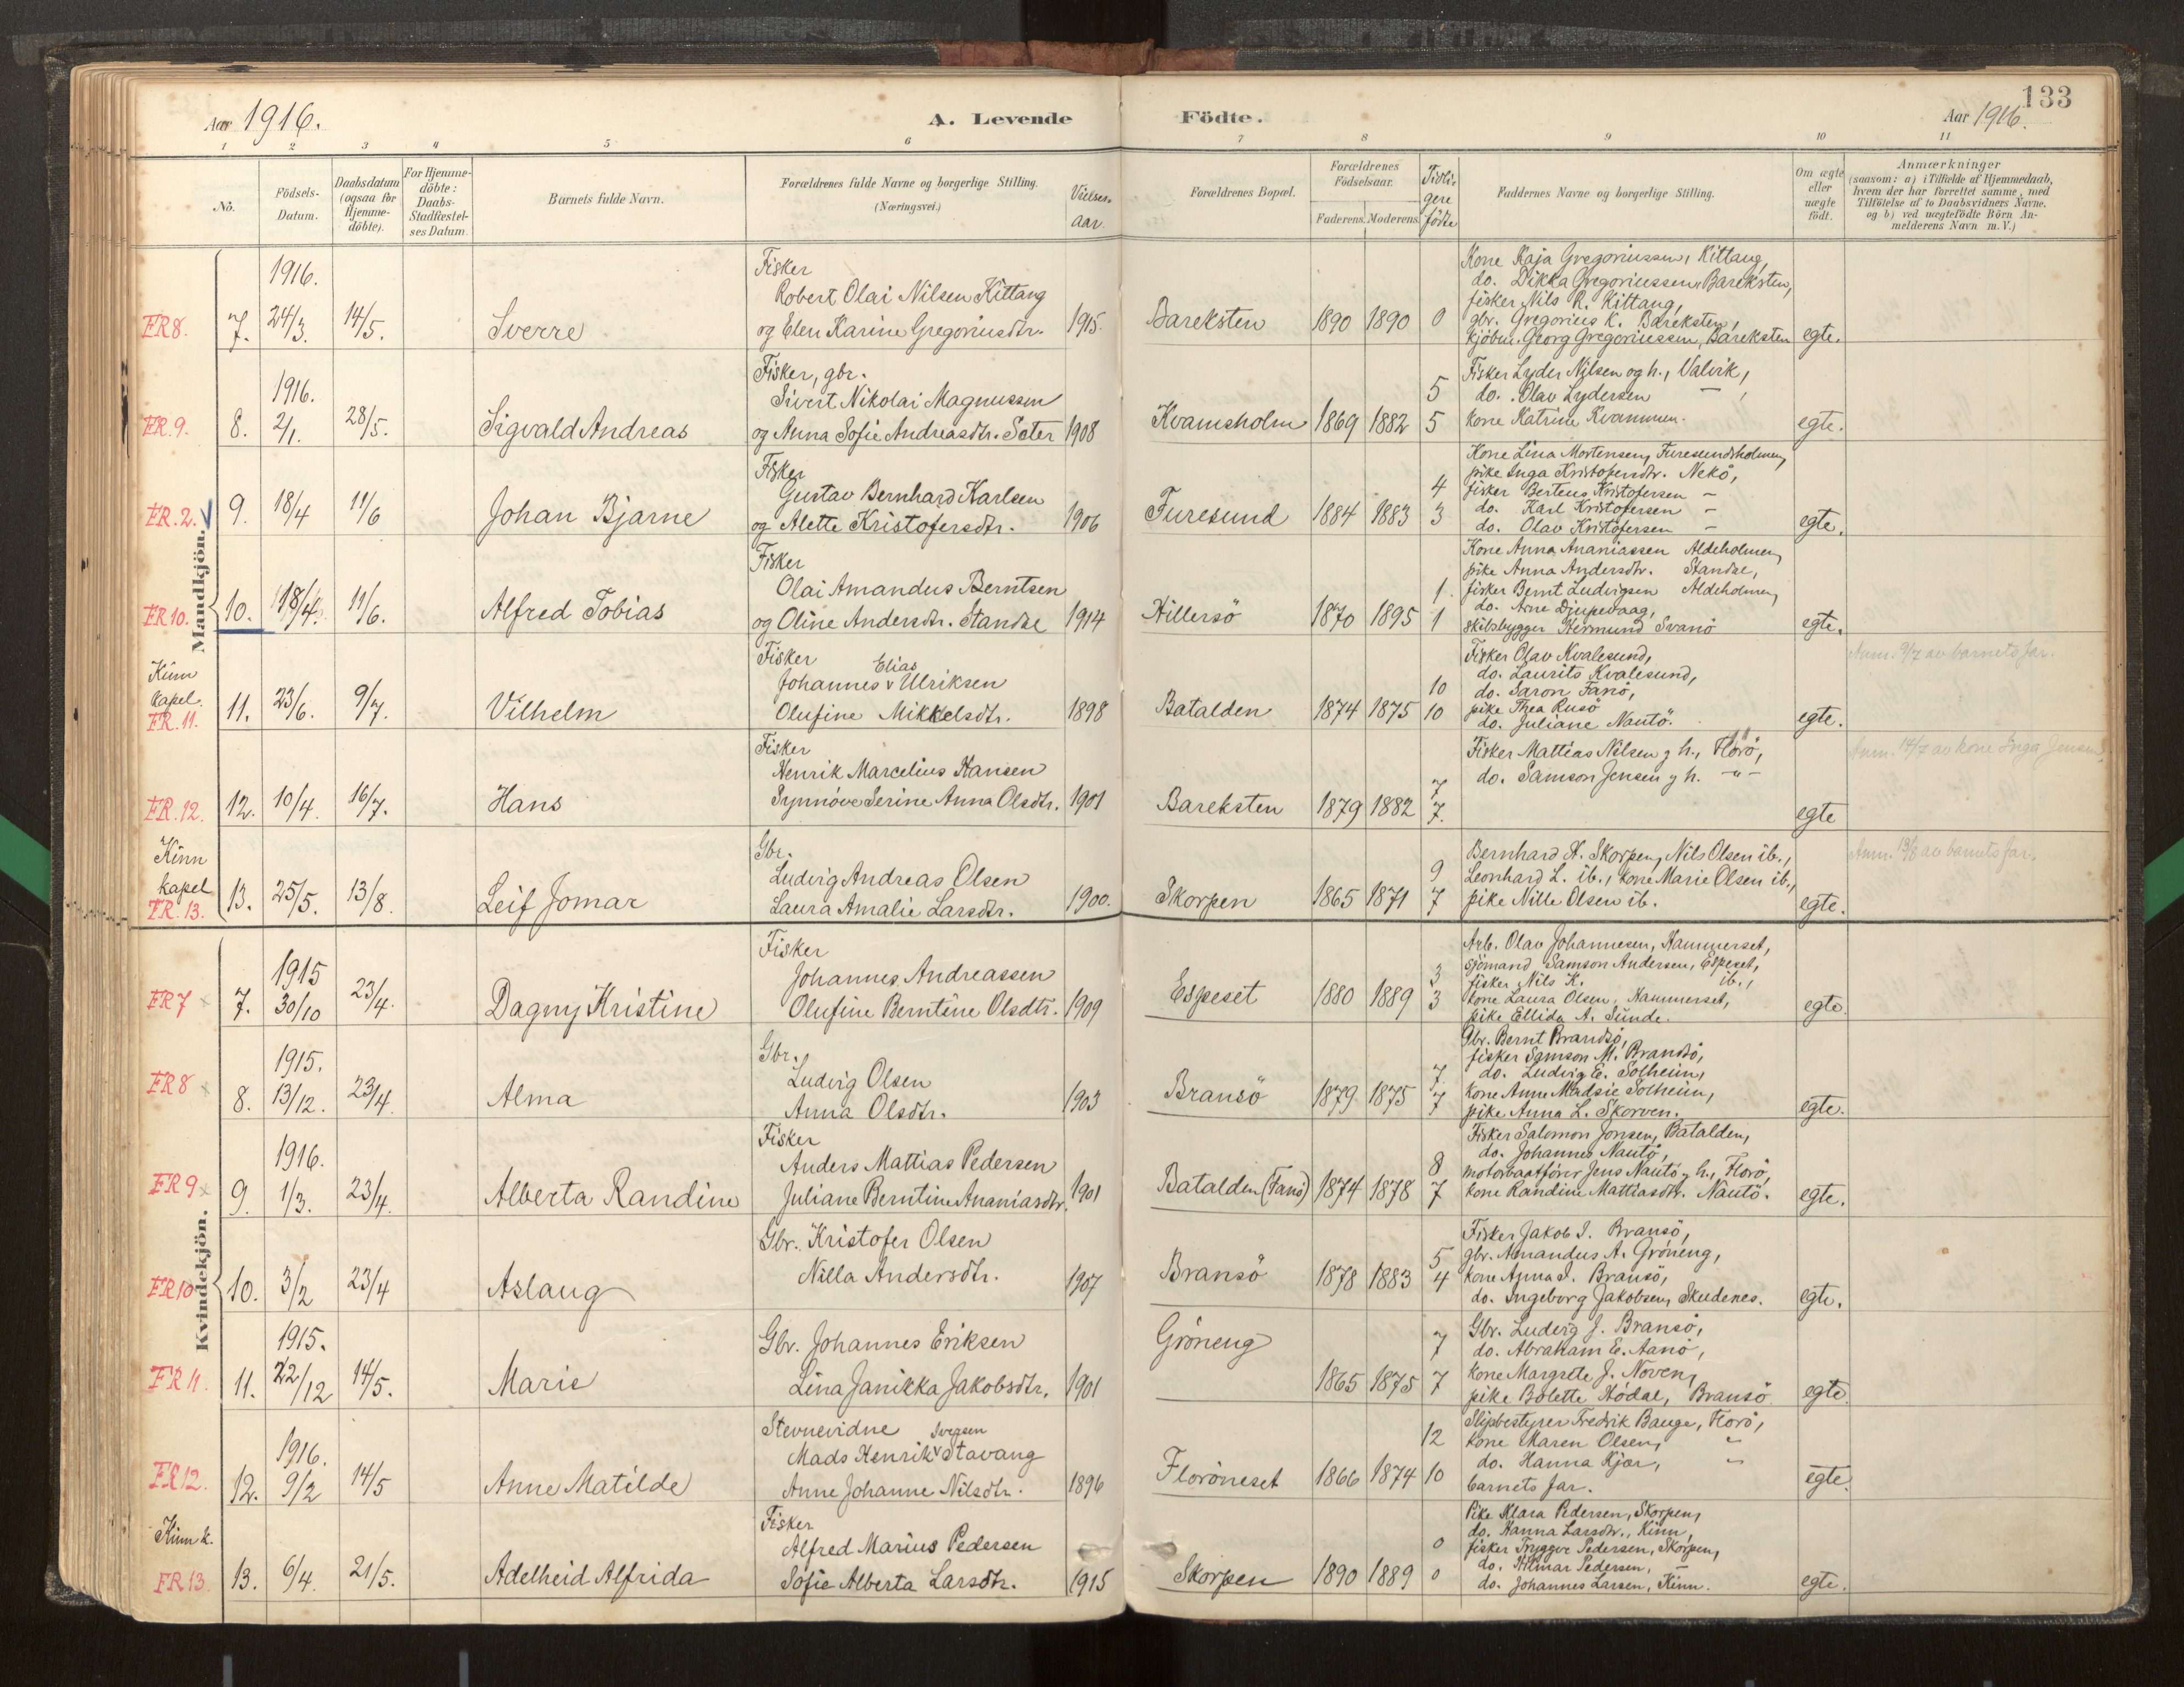 133
Aar 1916.
A. Levende
Födte.
Aar 1916.
1 2 3 4 5 6 7 8 9 10 11
Nö.
Födsels-Datum.
Daabsdatum (ogsaa for Hjemme-döbte).
For Hjemme-döbte: Daabs-Stadfæstel-ses Datum.
Barnets fulde Navn.
Forældrenes fulde Navne og borgerlige Stilling.
(Næringsvei.)
Vielses-aar.
Forældrenes Bopæl.
Forældrenes Födselsaar.
Faderens. Moderens.
Tidligere födte
Faddernes Navne og borgerlige Stilling.
Om ægte eller uægte födt.
Anmærkninger
(saasom: a) i Tilfælde af Hjemmedaab,
hvem der har forrettet samme, med
Tilföielse af to Daabsvidners Navne,
og b) ved uægtefödte Börn An-
melderens Navn m.V.)
Mandkjön.
FR 8. 7. 1916. 24/3. 14/5. Sverre
Fisker
Robert Olai Nilsen Kittang
og Elen Karine Gregoriusdtr. 1915.
Bareksten 1890 1890 0
Kone Kaja Gregoriussen, Kittang,
do. Dikka Gregoriussen, Bareksten,
fisker Nils R. Kittang,
gbr. Gregorius K. Bareksten,
kjöbm. Georg Gregoriussen, Bareksten
egte.
FR. 9. 8. 1916. 2/1. 28/5. Sigvald Andreas
Fisker, gbr.
Sivert Nikolai Magnussen
og Anna Sofie Andreasdtr. Seter 1908
Kvamsholm 1869 1882 5 5
Fisker Lyder Nilsen og h., Valvik,
do. Olav Lydersen — ,
kone Katrine Kvammen.
egte.
FR. 2. 9. 18/4 11/6 Johan Bjarne
Fisker
Gustav Bernhard Karlsen
og Alette Kristofersdtr. 1906
Furesund 1884 1883 4 3
Kone Lina Mortensen, Furesundsholmen,
pike Inga Kristofersdtr. Nekö,
fisker Bertens Kristofersen —
do. Karl Kristofersen —
do. Olav Kristofersen —
egte.
FR 10. 10. 18/4. 11/6. Alfred Tobias
Fisker
Olai Amandus Berntsen
og Oline Andersdtr. Standal 1914
Hillersö 1870 1895 1 1
Kone Anna Ananiassen Aldeholmen,
pike Anna Andersdtr. Standal,
fisker Bernt Ludvigsen Aldeholmen,
do. Arne Djupevaag,
skibsbygger Hermund Svanö
egte.
Kinn kapel.
FR. 11. 11. 23/6. 9/7. Vilhelm
Fisker
Elias
Johannes v Ulriksen
Olufine Mikkelsdtr. 1898
Batalden 1874 1875 10 10
Fisker Olav Kvalesund,
do. Laurits Kvalesund,
do. Saron Fanö,
pike Thea Rusö
do. Juliane Nautö.
egte.
Anm. 9/7 av barnets far.
FR. 12. 12. 10/4. 16/7. Hans
Fisker
Henrik Marcelius Hansen
Synnöve Serine Anna Olsdtr. 1901
Bareksten 1879 1882 7 7.
Fisker Mattias Nilsen og h., Florö,
do. Samson Jensen og h. — " —
egte
Anm. 14/7 av kone Inga Jensen
Kinn kapel
FR. 13. 13. 25/5. 13/8 Leif Jomar
Gbr.
Ludvig Andreas Olsen
Laura Amalie Larsdtr. 1900.
Skorpen 1865 1871 9 7
Bernhard H. Skorpen, Nils Olsen ib.,
Leonhard L. ib., kone Marie Olsen ib.,
pike Nille Olsen ib.
egte.
Anm. 13/8 av barnets far.
Kvindekjön.
FR 7 7. 1915 30/10 23/4. Dagny Kristine
Fisker
Johannes Andreassen
Olufine Berntine Olsdtr. 1909
Espeset 1880 1889 3 3
Arb. Olav Johannesen, Hammerset,
sjömand Samson Andersen, Espeset,
fisker Nils K. ib.,
kone Laura Olsen, Hammerset,
pike Ellida A. Sunde.
egte.
FR 8 8. 1915. 13/12. 23/4. Alma
Gbr.
Ludvig Olsen
Anna Olsdtr. 1903
Bransö 1879 1875 7 7
Gbr. Bernt Brandsö,
fisker Samson M. Brandsö,
do. Ludvig E. Solheim,
kone Anne Madsie Solheim,
pike Anna L. Skorven.
egte.
FR 9 9. 1916. 1/3. 23/4. Alberta Randine
Fisker
Anders Mattias Pedersen
Juliane Berntine Ananiasdtr. 1901
Batalden (Fanö) 1874 1878 8 7
Fisker Salomon Jonsen, Batalden,
do. Johannes Nautö,
motorbaatförer Jens Nautö og h., Florö,
kone Randine Mattiasdtr. Nautö.
egte.
FR 10 10. 3/2 23/4 Aslaug
Gbr. Kristofer Olsen
Nilla Andersdtr. 1907
Bransö 1878 1883 5 4
Fisker Jakob I. Bransö,
gbr. Amandus A. Gröneng,
kone Anna I. Bransö,
do. Ingeborg Jakobsen, Skudenes.
egte.
FR 11. 11. 1915. 22/12 14/5. Marie
Gbr. Johannes Eriksen
Lina Janikka Jakobsdtr. 1901
Gröneng 1865 1875 7 7
Gbr. Ludvig J. Bransö,
do. Abraham E. Aanö,
kone Margrete J. Noven,
pike Bolette Hödal, Bransö.
egte.
FR 12. 12. 1916. 9/2 14/5 Anne Matilde
Stevnevidne Svensen
Mads Henrik v Stavang
Anne Johanne Nilsdtr. 1896
Floröneset 1866 1874 12 10
Slipbestyrer Fredrik Bauge, Florö,
kone Maren Olsen, "
do. Hanna Kjær, "
barnets far.
egte.
Kinn k.
FR 13. 13. 6/4. 21/5. Adelheid Alfrida
Fisker
Alfred Marius Pedersen
Sofie Alberta Larsdtr. 1915
Skorpen 1890 1889 0 0
Pike Klara Pedersen, Skorpen,
do. Hanna Larsdtr., Kinn,
fisker Trygve Pedersen, Skorpen,
do. Hilmar Pedersen, —
do. Johannes Larsen, Kinn.
egte.